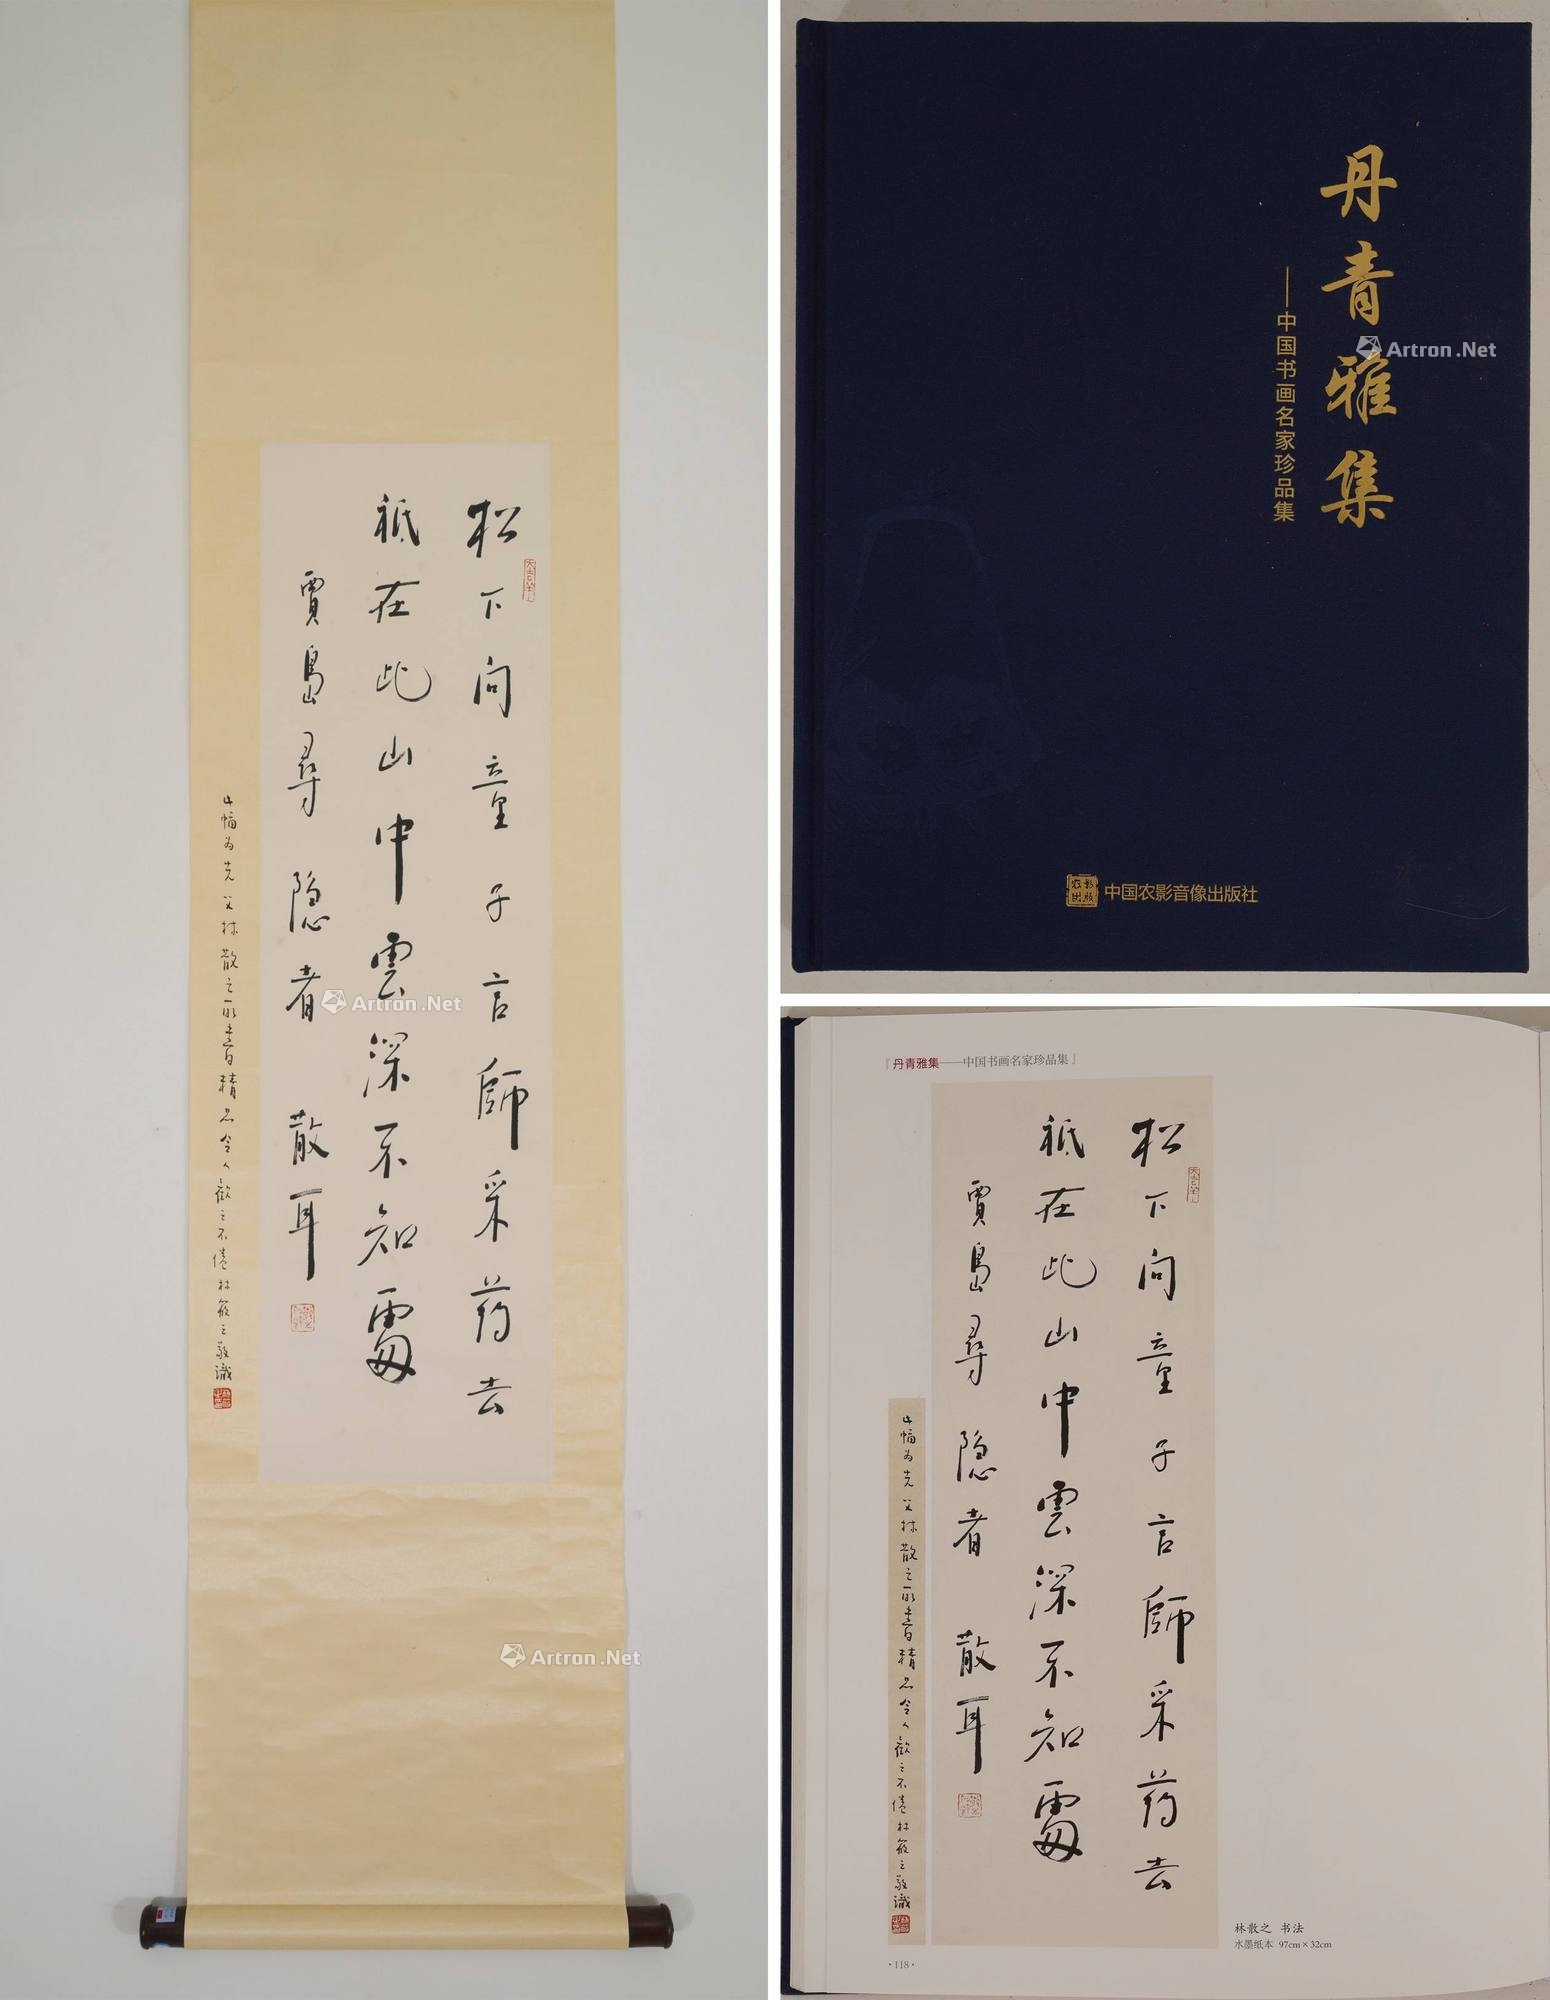 松下问童子言師采药去
祇在此山中雲深不知處
賈島尋隐者 散耳
此幅为先父林散之所書精品令人歡之不倦林筱之敬識
Artron.Net
Artron.Net
丹青雅集
——中国书画名家珍品集
Artron.Net
中国农影音像出版社
『丹青雅集——中国书画名家珍品集』
松下问童子言師采药去
祇在此山中雲深不知處
賈島尋隐者 散耳
此幅为先父林散之所書精品令人歡之不倦林筱之敬識
林散之 书法
水墨纸本 97cm×32cm
·118·